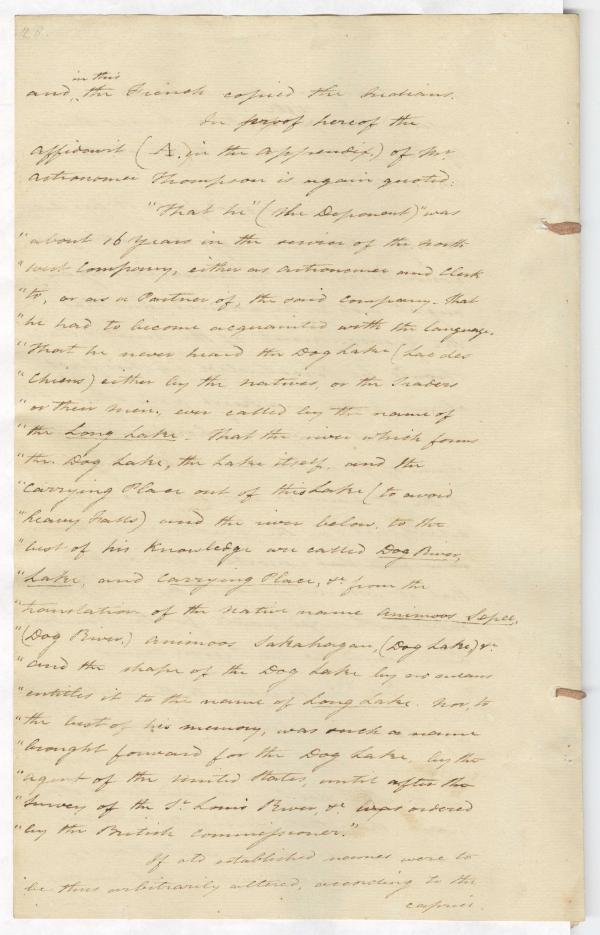 28.
in this
and, the French copied the Indians.
In proof hereof the
affidavit (A. in the appendix,) of Mr.
astronomer Thompson is again quoted:
"That he" (the Deponent) "was
"about 16 Years in the service of the North
"west Company, either as astronomer and Clerk
"to, or as a Partner of, the said Company. That
"he had to become acquainted with the language.
"That he never heard the Dog Lake (Lac des
"Chiens) either by the natives, or the Traders
"or their men, ever called by the name of
"the Long Lake. That the river which forms
"the Dog Lake, the Lake itself, and the
"Carrying Place out of this Lake (to avoid
"heavy Falls) and the river below, to the
"best of his Knowledge are called Dog River,
"Lake, and Carrying Place, &c. from the
"translation of the native name Animoos Sepee,
"(Dog River.) Animoos Sakahagan, (Dog Lake,) &c.
"and the shape of the Dog Lake by no means
"entitles it to the name of Long Lake. Nor, to
"the best of his memory, was such a name
"brought forward for the Dog Lake, by the
"agent of the United States, until after the
"Survey of the St. Louis River, &c. was ordered
"by the British Commissioner."
If old established names were to
be thus arbitrarily altered, according to the
caprice